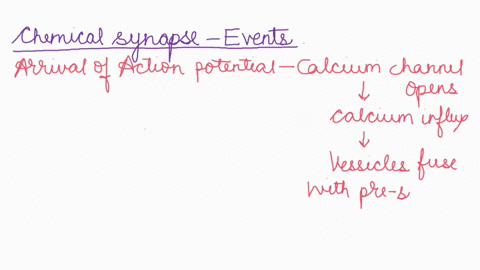 Chemical synapse – Events
Arrival of Action potential – Calcium channel
opens
↓
Calcium influx
↓
Vessicles fuse
with pre-s